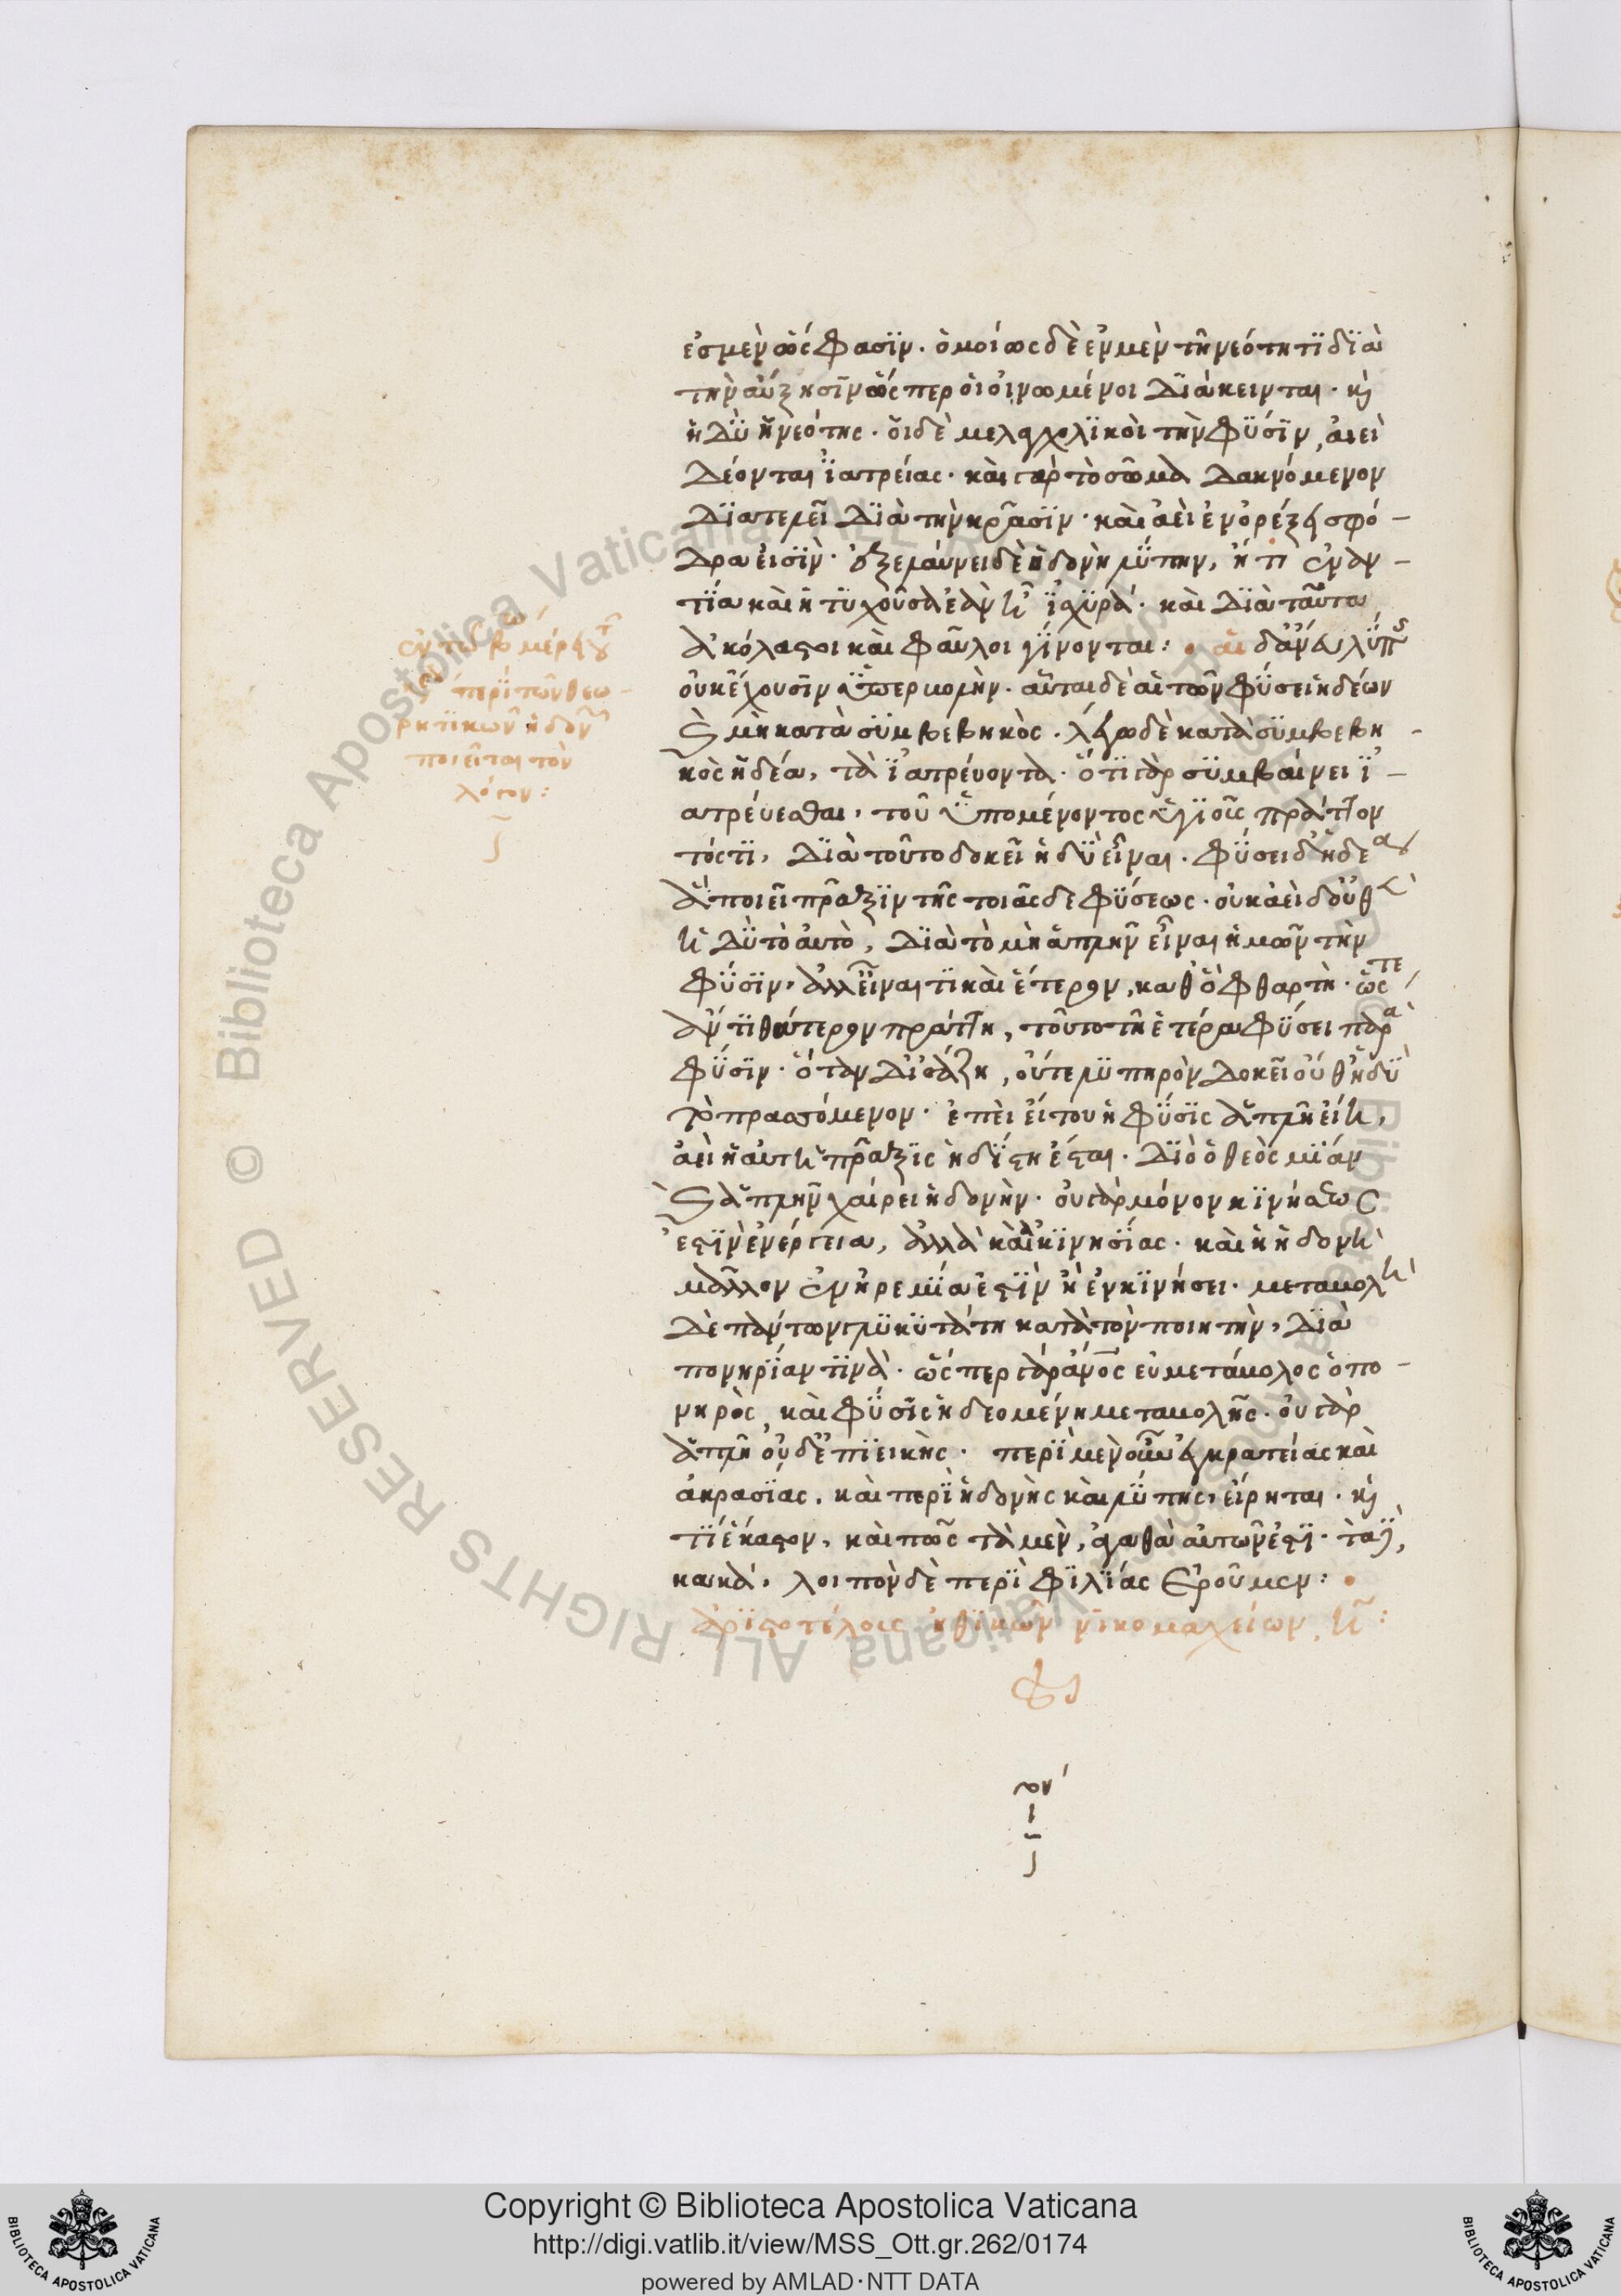 ἐσμὲν ὥς φασιν. ὁμοίως δὲ ἐν μὲν τῆ νεότητι διὰ
τὴν αὔξησιν ὥσπερ οἱ οἰνωμένοι διάκεινται. κ
ἡδὺ ἡ νεότης. οἱ δὲ μελαγχολικοὶ τὴν φύσιν, αἰεὶ
δέονται ἰατρείας. καὶ γὰρ τὸ σῶμα δακνόμενον
διατελεῖ διὰ τὴν κρᾶσιν. καὶ ἀεὶ ἐν ὀρέξει σφό-
δρα εἰσίν. ἐξελαύνει δὲ ἡδονὴ λύπην, ἥ τ' ἐναν-
τία καὶ ἡ τυχοῦσα ἐὰν ἦ ἰσχυρά. καὶ διὰ ταῦτα
ἀκόλαστοι καὶ φαῦλοι γίνονται: αἱ δ' ἄνευ λύπς
οὐκ ἔχουσιν ὑπερβολήν. αὗται δὲ αἱ τῶν φύσει ἡδέων
κ μὴ κατὰ συμβεβηκὸς. λέγω δὲ κατὰ συμβεβη-
κὸς ἡδέα, τὰ ἰατρεύοντα. ὅτι γὰρ συμβαίνει ἰ-
ατρεύεσθαι, τοῦ ὑπομένοντος ὑγιοῦς πράττον
τός τι, διὰ τοῦτο δοκεῖ ἡδὺ εἶναι. φύσει δ' ἡδέα
ἃ ποιεῖ πρᾶξιν τῆς τοιᾶσδε φύσεως. οὐκ ἀεὶ δ' οὐθὲ
ἡδὺ τὸ αὐτὸ, διὰ τὸ μὴ ἁπλῆν εἶναι ἡμῶν τὴν
φύσιν, ἀλλ' εἶναι τι καὶ ἕτερον, καθὸ φθαρτὴ. ὥστε
ἄν τι θάτερον πράττη, τοῦτο τῆ ἑτέρα φύσει παρὰ
φύσιν. ὅταν δ' ἰσάζη, οὔτε λυπηρὸν δοκεῖ οὔθ' ἡδὺ
τὸ πραττόμενον. ἐπεὶ εἴ του ἡ φύσις ἁπλῆ εἴη,
ἀεὶ ἡ αὐτὴ πρᾶξις ἡδίστη ἔσται. διὸ ὁ θεὸς μίαν
κ ἁπλῆν χαίρει ἡδονὴν. οὐ γὰρ μόνον κινήσεως
ἐστὶν ἐνέργεια, ἀλλὰ καὶ ἀκινησίας. καὶ ἡ ἡδονὴ
μᾶλλον ἐν ἠρεμία ἐστὶν ἢ ἐν κινήσει. μεταβολὴ
δὲ πάντων γλυκυτάτη κατὰ τὸν ποιητὴν, διὰ
πονηρίαν τινά. ὥσπερ γὰρ ἄνος εὐμετάβολος ὁ πο-
νηρὸς, καὶ φύσις ἡ δεομένη μεταβολῆς. οὐ γὰρ
ἁπλῆ οὐδ' ἐπιεικὴς. περὶ μὲν οὖν ἐγκρατείας καὶ
ἀκρασίας, καὶ περὶ ἡδονῆς καὶ λύπης, εἴρηται. κ
τί ἕκαστον, καὶ πῶς τὰ μὲν, ἀγαθὰ αὐτῶν ἐστι. τὰ δὲ,
κακά, λοιπὸν δὲ περὶ φιλίας ἐροῦμεν:
ἀριστοτέλους ἠθικῶν νικομαχείων, η:
ἐν τῶ β μέρει τ
περὶ τῶν θεω-
ρητικῶν ἡδον
ποιεῖται τὸν
λόγον: